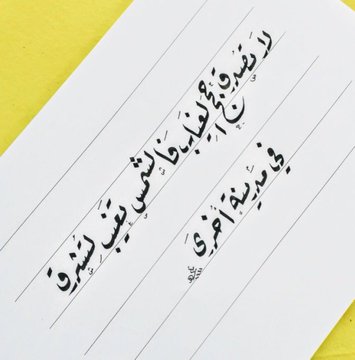 لا تصدق حجج الغياب فالشمس تغيب لتشرق
في مدينة أخرى